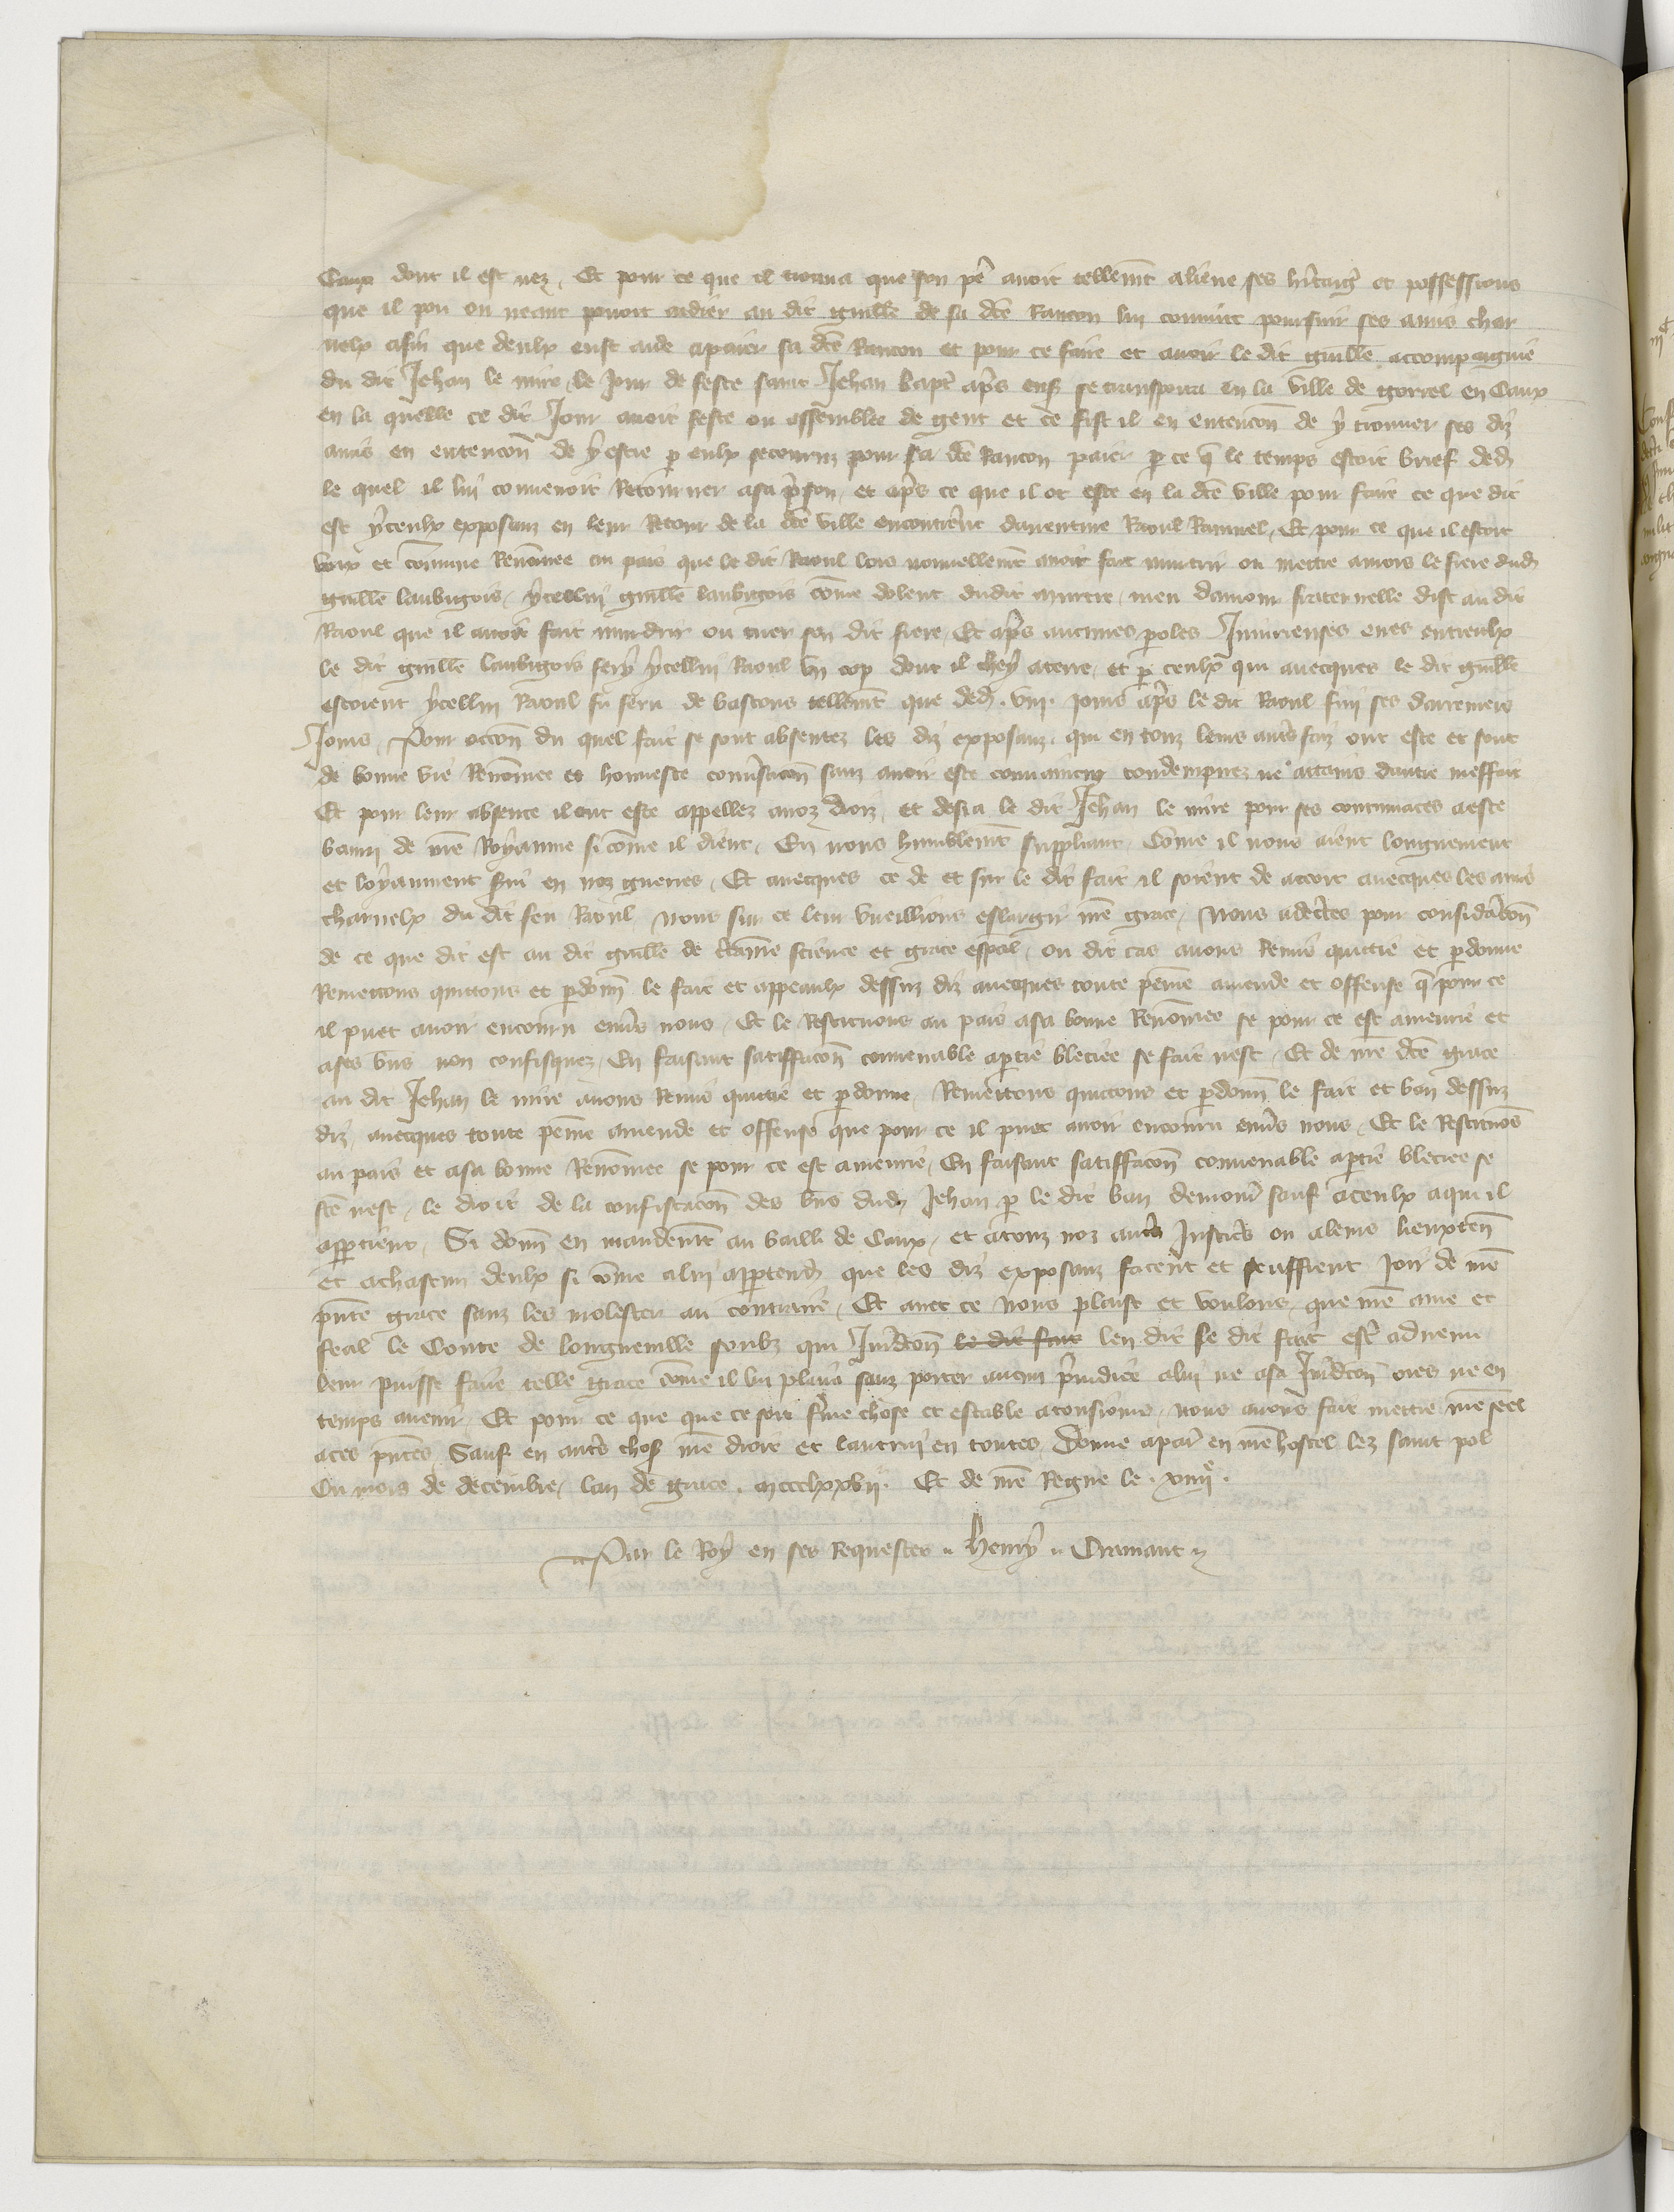 Caux dont il est nez. Et pour ce que il trouva que son pe avoit tellemt aliene ses hitaig et possessions
que il pou ou neant povoit aidier au dit Guille de sa dce Rancon lui convint poursuir ses amis char
nelx afin que deulx eust aide a paier sa dce Rancon et pour ce faire et avoir le dit Guille accompaignie
du dit Jehan le mire le Jour de feste saint Jehan bapt aps ens se transporta en la ville de gorrel en Caux
en la quelle ce dit Jour avoit feste ou assemblee de gent et ce fist il en entencon de y trouver ses diz
amis en entencon de y estre p eulx secouruz pour sa dce Rancon paier p ce q le temps estoit brief ded
le quel il lui convenoit Retourner a sa pson et aps ce que il ot este en la dce ville pour faire ce que dit
est yceulx exposans en leur Retour de la dce ville encontrent daventure Raoul Ravinel, Et pour ce que il estoit
voix et comune Renomee ou pais que le dit Raoul lors nouvellemt avoit fait murtrir ou mettre amors le frere dud
guille laubigois, ycellui guille laubigois come dolent dudit murtre meu damour fraternelle dist au dit
Raoul que il avoit fait murdrir ou tuer son dit frere, Et aps aucunes poles Jniurieuses eues entreulx
le dit guille laubigois fery ycellui Raoul un cop dont il chey a terre, et p ceulx qui avecques le dit guille
estoient ycellui Raoul fu feru de bastons tellemt que ded. viii. jours aps le dit Raoul fini ses darreniers
Jours, Pour occon du quel fait se sont absentez les diz exposans. qui en touz leurs autsfaiz ont este et sont
de bonne vie Renomee et honneste convsacon sanz avoir este convaincuz condempnez ne attains dautre meffait
Et pour leur absence il ont este appellez a noz droiz, et desia le dit Jehan le mire pour ses contumaces a este
banni de nre Royaume si come il dient, En nous humblemt suppliant, Come il nous aient longuement
et loyaument svi en noz guerres, Et avecques ce de et sur le dit fait il soient de accort avecques les amis
charnelx du dit feu Raoul nous sur ce leur vueillions eslargir nre grace, Nous adectes pour considacon
de ce que dit est au dit guille de ctaine science et grace espal, ou dit cas avons Remis quittie et pdonne
Remettons quittons et pdonn le fait et appeaulx dessuz diz avecques toute peine amende et offense q pour ce
il puet avoir encouru envs nous, Et le Restituons au pais a sa bonne Renomee se pour ce est amenrie et
a ses bns non confisquez, En faisant satiffacon convenable a ptie bleciee se fait nest, Et de nre dce grace
au dit Jehan le mire avons Remis quittie et pdonne, Remettons quittons et pdonn le fait et ban dessuz
diz, avecques toute peine amende et offense que pour ce il puet avoir encouru envs nous, Et le Restituos
au pais et a sa bonne Renomee se pour ce est amenrie, En faisant satiffacon convenable a ptie bleciee se
fte nest, le droit de la confiscacon des bns dud Jehan p le dit ban demour sauf a ceulx a qui il
apptient, Si donn en mandemt au bailli de Caux, et a touz noz auts Justics ou a leurs lieuxten
et a chascun deulx si come a lui apptend que les diz exposans facent et seuffrent Joir de nre
pnte grace sanz les molester au contraire, Et avec ce Nous plaist et voulons, que nre ame et
feal le Conte de longueville soubz qui Juridcon le dit fait len dit le dit fait estr advenu
leur puisse faire telle grace come il lui plaira sanz porter aucun pjudice a lui ne a sa Juridcon ores ne en
temps avenir, Et pour ce que que ce soit fme chose et estable a tousiours, nous avons fait mettre nre seel
a ces pntes, Sauf en auts chos nre droit et lautrui en toutes, Donne a par en nre hostel lez saint pol
Ou mois de decembre, lan de grace. mccclxxvii. Et de nre Regne le. xiiiie.
Par le Roy en ses Requestes .. Henry .. Cramant ..